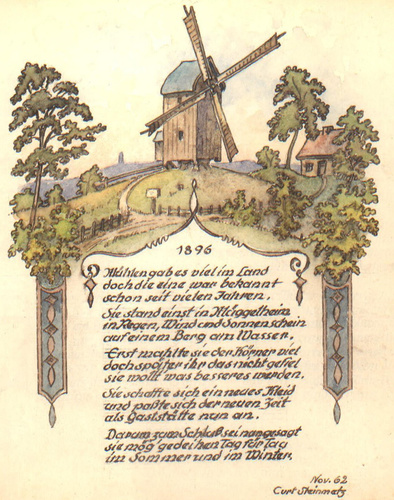 1896
Mühlen gab es viel im Land
doch die eine war bekannt
schon seit vielen Jahren.
Sie stand einst in Müggelheim
in Regen, Wind und Sonnenschein
auf einem Berg am Wasser.
Erst mahlte sie der Körner viel
doch später ihr das nicht gefiel
sie wollt was besseres werden.
Sie schaffte sich ein neues Kleid
und paßte sich der neuen Zeit
als Gaststätte nun an.
Darum zum Schluß sei nangesagt
sie mög gedeihen Tag für Tag
im Sommer und im Winter.
Nov. 62
Curt Steinmetz